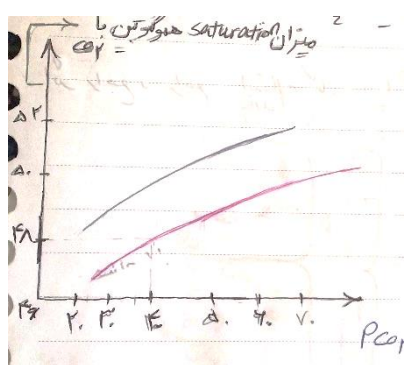 میزان saturation هموگلوبین با
CO₂
۵۲
۵۰
۴۸
۴۶
۲۰ ۳۰ ۴۰ ۵۰ ۶۰ ۷۰
PCO₂